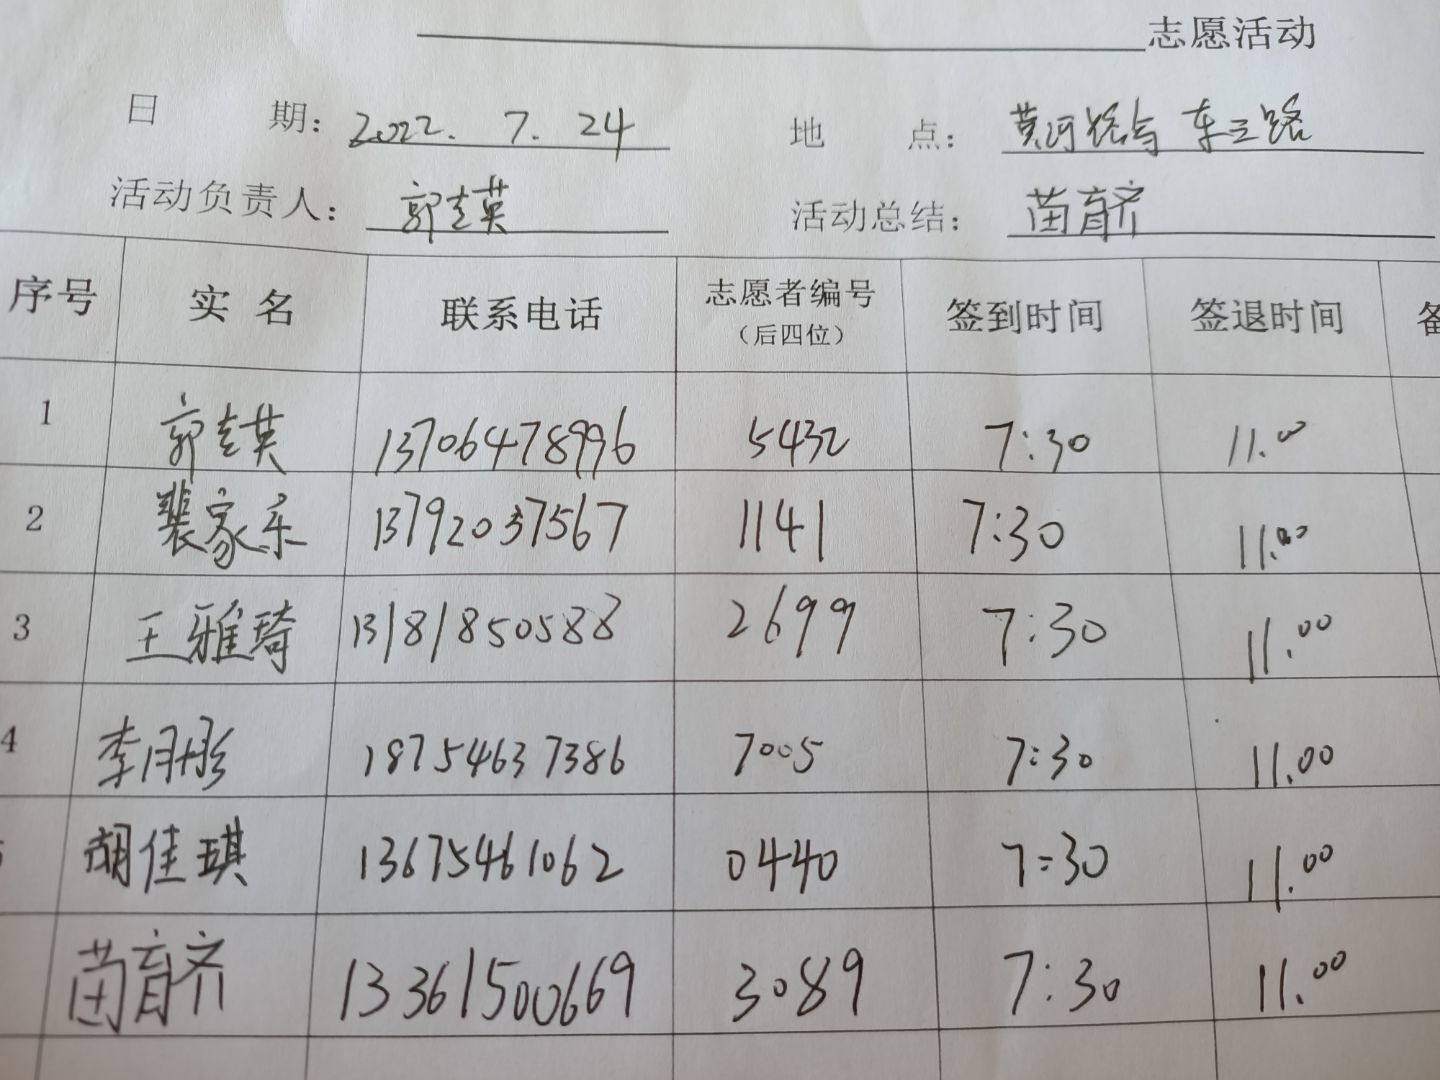 志愿活动
日 期： 2022. 7. 24 地 点： 黄河路与东三路
活动负责人： 郭志英 活动总结： 苗育齐
序号 实 名 联系电话 志愿者编号（后四位） 签到时间 签退时间
1 郭志英 13706478996 5432 7:30 11.00
2 裴家乐 13792037567 1141 7:30 11.00
3 王雅琦 13181850588 2699 7:30 11.00
4 李月彤 18754637386 7005 7:30 11.00
胡佳琪 13675461062 0440 7:30 11.00
苗育齐 13361500669 3089 7:30 11.00